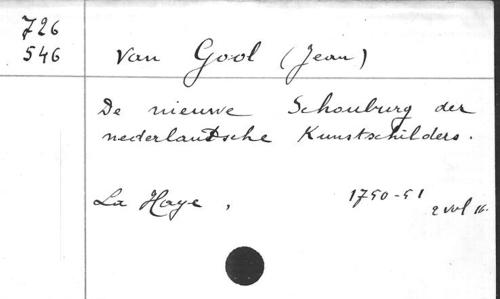 726
546
Van Gool (Jean)
De nieuwe Schouburg der
nederlandsche Kunstschilders.
La Haye, 1750-51
2 vol 16.